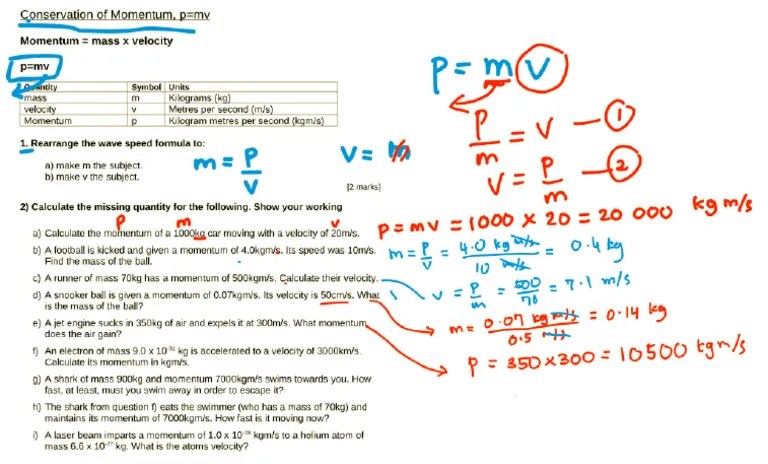 Conservation of Momentum, p=mv
Momentum = mass x velocity
p=mv
Quantity Symbol Units
mass m Kilograms (kg)
velocity v Metres per second (m/s)
Momentum p Kilogram metres per second (kgm/s)
1. Rearrange the wave speed formula to:
a) make m the subject.
b) make v the subject.
[2 marks]
m = P/V
V = m
P = mV
P/m = V — ①
V = P/m — ②
2) Calculate the missing quantity for the following. Show your working
P m v
a) Calculate the momentum of a 1000kg car moving with a velocity of 20m/s.
P = mv = 1000 x 20 = 20 000 kg m/s
b) A football is kicked and given a momentum of 4.0kgm/s. Its speed was 10m/s.
Find the mass of the ball.
m = P/V = 4.0 kg m/s / 10 m/s = 0.4 kg
c) A runner of mass 70kg has a momentum of 500kgm/s. Calculate their velocity.
v = P/m = 500/70 = 7.1 m/s
d) A snooker ball is given a momentum of 0.07kgm/s. Its velocity is 50cm/s. What
is the mass of the ball?
m = 0.07 kg m/s / 0.5 m/s = 0.14 kg
e) A jet engine sucks in 350kg of air and expels it at 300m/s. What momentum
does the air gain?
P = 350 x 300 = 10500 kgm/s
f) An electron of mass 9.0 x 10⁻³¹ kg is accelerated to a velocity of 3000km/s.
Calculate its momentum in kgm/s.
g) A shark of mass 900kg and momentum 7000kgm/s swims towards you. How
fast, at least, must you swim away in order to escape it?
h) The shark from question f) eats the swimmer (who has a mass of 70kg) and
maintains its momentum of 7000kgm/s. How fast is it moving now?
i) A laser beam imparts a momentum of 1.0 x 10⁻²⁶ kgm/s to a helium atom of
mass 6.6 x 10⁻²⁷ kg. What is the atoms velocity?